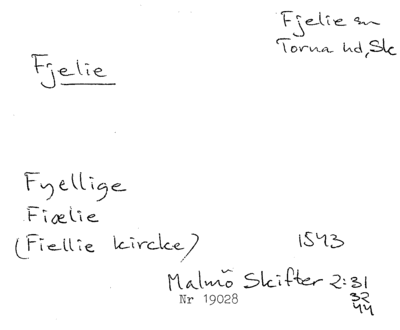 Fjelie sn
Torna hd, Sk
Fjelie
Fyellige
Fiælie
(Fiellie kircke) 1543
Malmö Skifter 2:31
32
44
Nr 19028